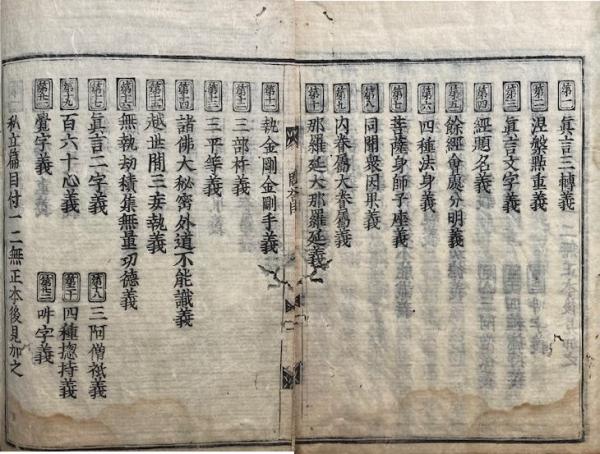 第一 眞言三轉義
第二 涅槃點重義
第三 眞言文字義
第四 經題名義
第五 餘經會處分明義
第六 四種法身義
第七 菩薩身師子座義
第八 同聞衆因果義
第九 内眷屬大眷屬義
第十 那羅延大那羅延義
第十一 執金剛金剛手義
第十二 三部杵義
第十三 三平等義
第十四 諸佛大秘密外道不能識義
第十五 越世間三妄執義
第十六 無執劫積集無量功德義
第十七 眞言二字義
第十八 三阿僧祇義
第十九 百六十心義
第二十 四種揔持義
第廿一 㝵字義
第廿二 吽字義
私立篇目付一二無正本後見加之